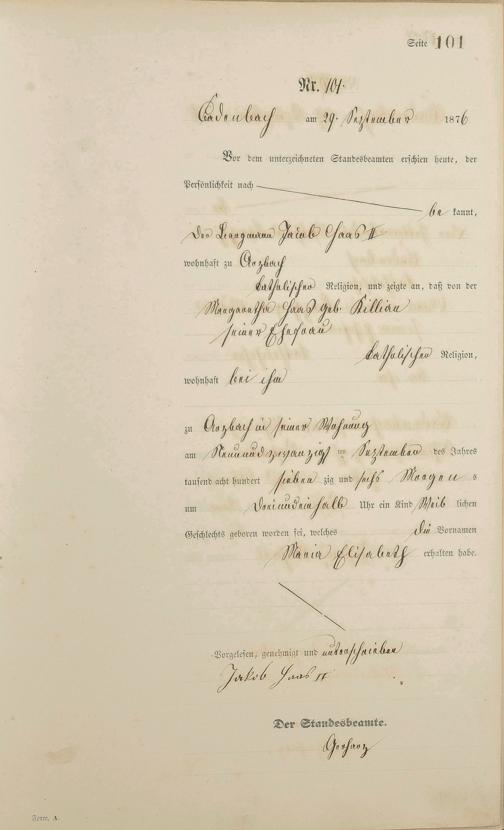 Seite 101
Nr. 101.
Cadenbach am 29. September 1876
Vor dem unterzeichneten Standesbeamten erschien heute, der
Persönlichkeit nach
be kannt,
der Bergmann Jacob Haas II
wohnhaft zu Arzbach
katholischer Religion, und zeigte an, daß von der
Margaretha Haas geb. Killian
seiner Ehefrau
katholischer Religion,
wohnhaft bei ihm
zu Arzbach in seiner Wohnung
am Neunundzwanzigst en September des Jahres
tausend acht hundert sieben zig und sechs Morgen s
um dreiundeinhalb Uhr ein Kind Weib lichen
Geschlechts geboren worden sei, welches die Vornamen
Maria Elisabeth erhalten habe.
Vorgelesen, genehmigt und unterschrieben
Jakob Haas II
Der Standesbeamte.
Gerharz
Form. A.